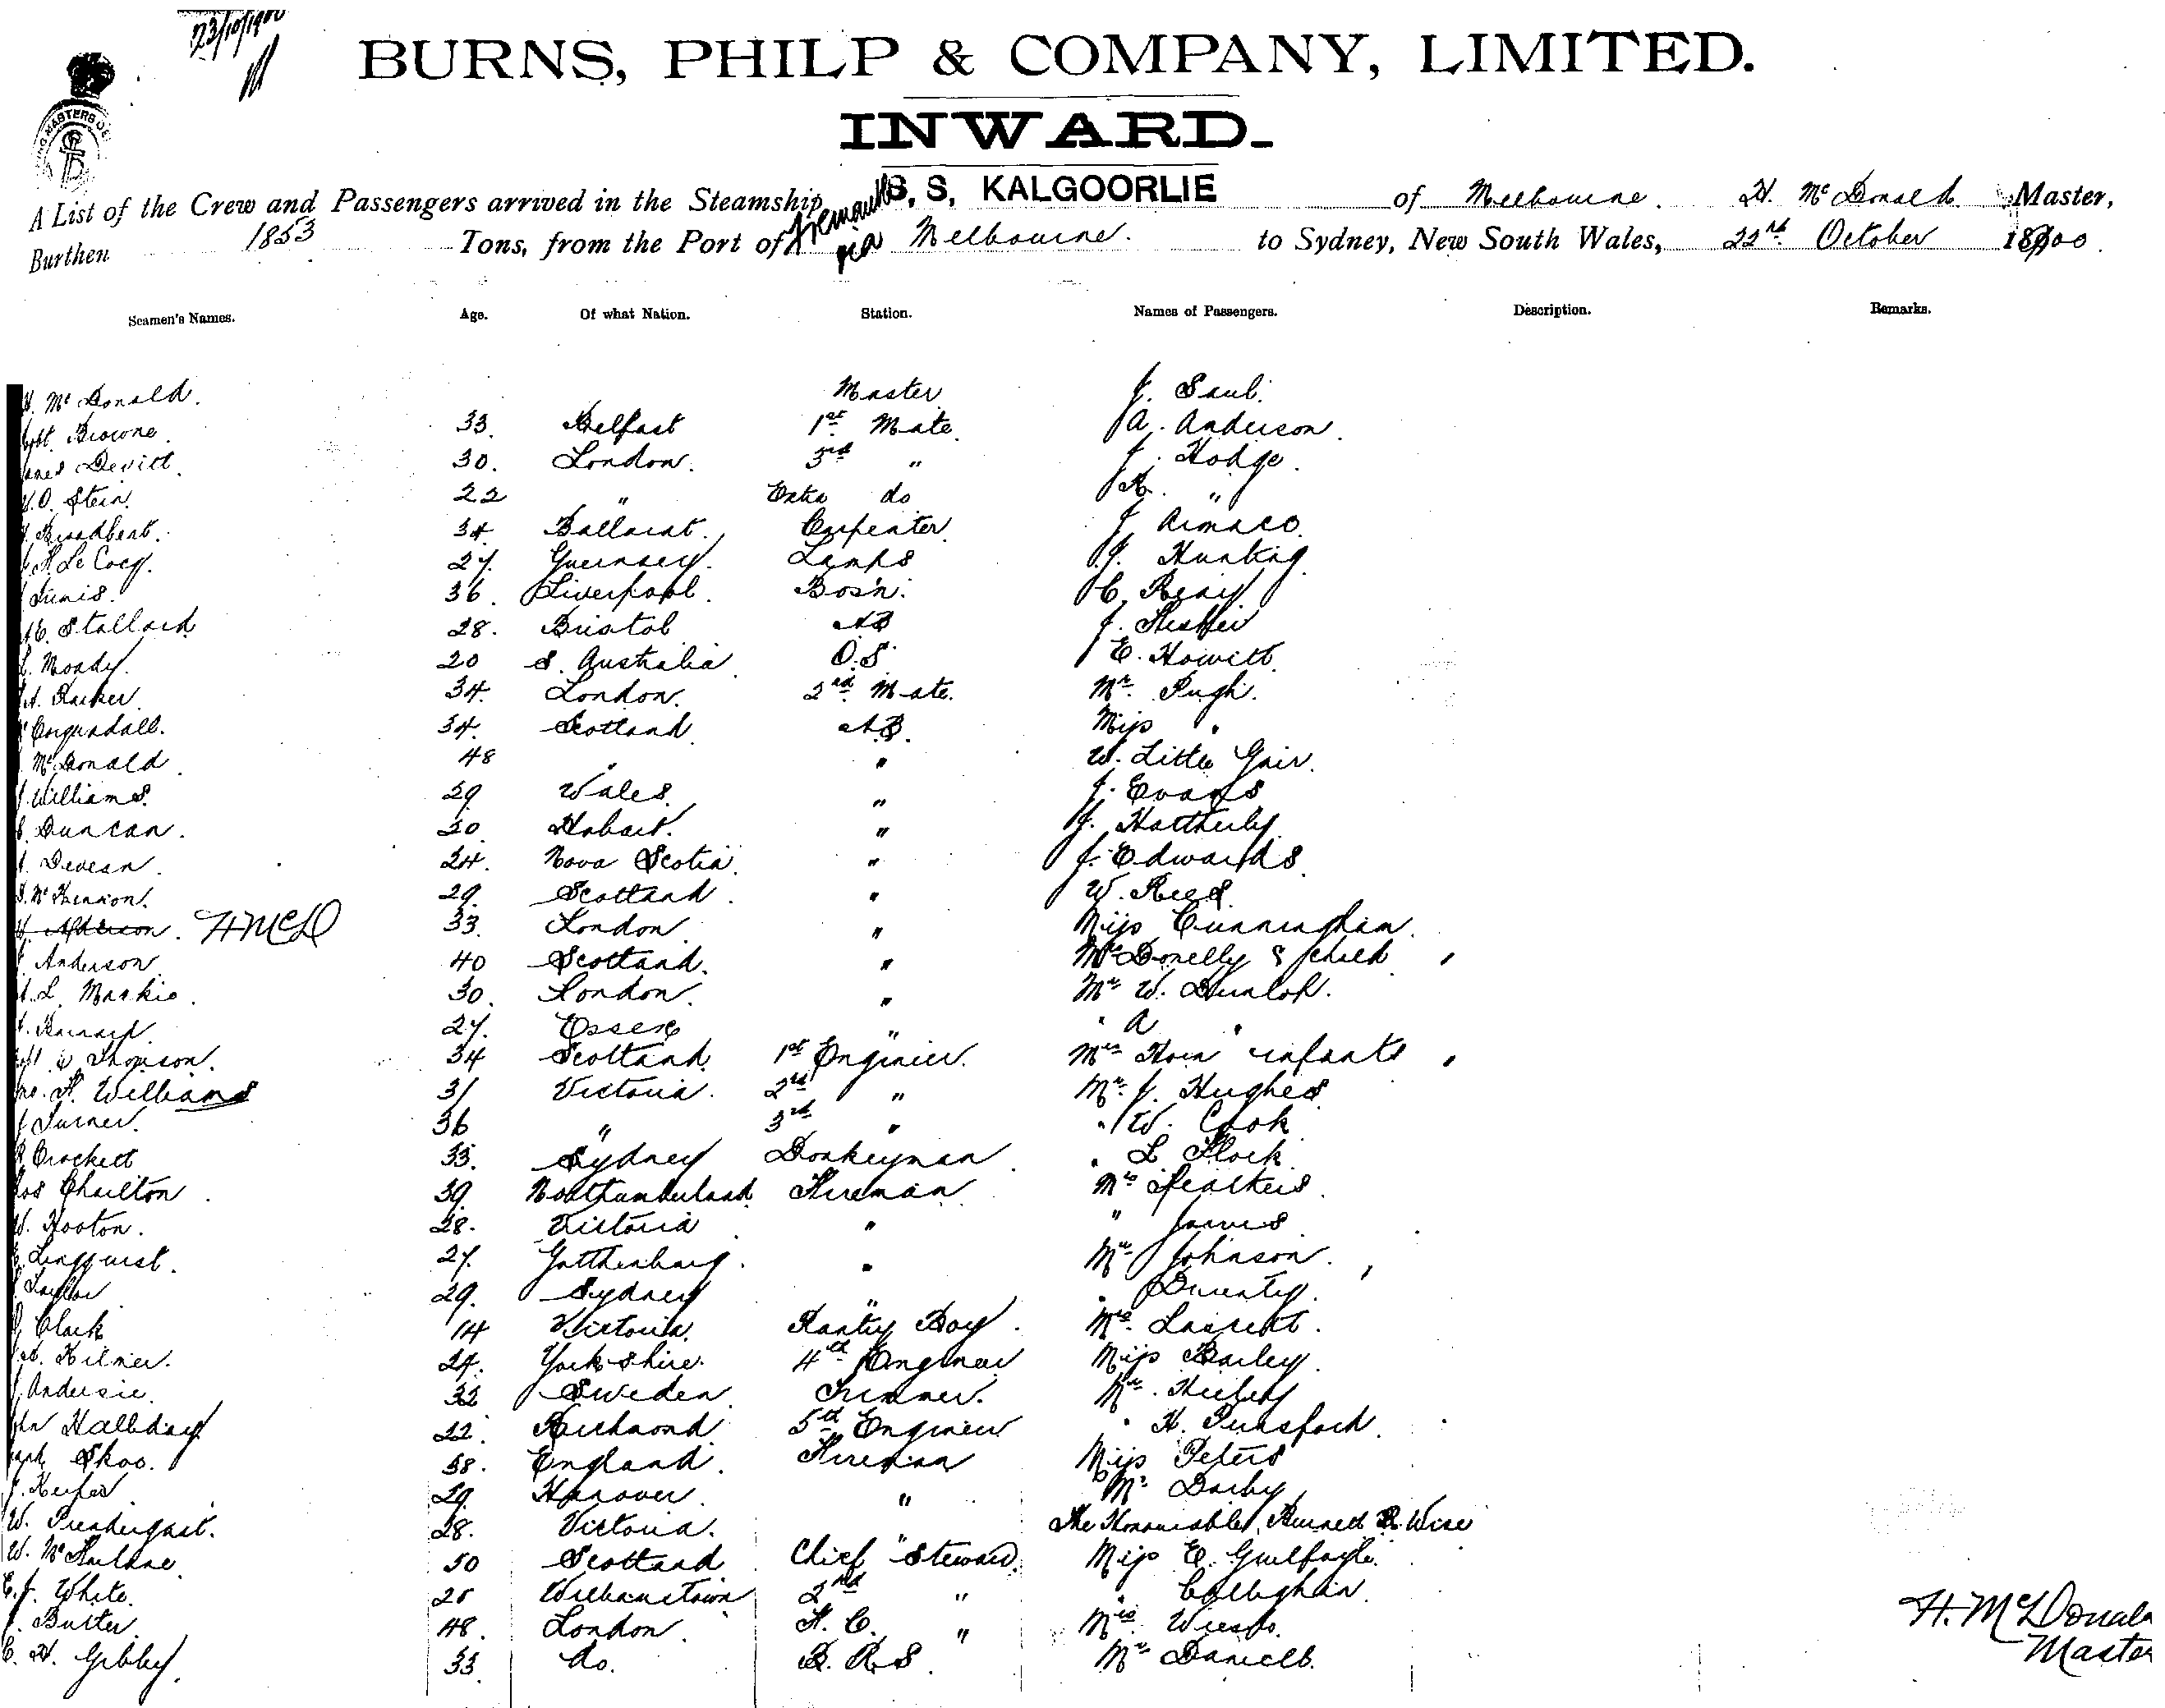 23/10/1900
BURNS, PHILP & COMPANY, LIMITED.
INWARD.
A List of the Crew and Passengers arrived in the Steamship S. S. KALGOORLIE of Melbourne. H. McDonald Master,
Burthen 1853 Tons, from the Port of Fremantle via Melbourne. to Sydney, New South Wales, 22nd October 1900.
Seamen's Names. Age. Of what Nation. Station. Names of Passengers. Description. Remarks.
H. McDonald. Master J. Saul.
Browne. 33. Belfast 1st Mate. A. Anderson.
Devitt. 30. London. 3rd " J. Hodge.
O. Stein. 22 " Extra do "
Broadbent. 34. Ballarat. Carpenter. J
Le Cocq. 27. Guernsey. Lamps J. Hunting
36. Liverpool. Bos'n. C. Reay
Stallard 28. Bristol AB J.
Moody. 20 S. Australia O.S. E. Howitt.
Parker. 34. London. 2nd Mate. Mr. Pugh.
34. Scotland AB. Miss "
McDonald 48 " " W. Little Gair.
Williams. 29 Wales. " J. Evans
Duncan. 20 Hobart. " J. Hatherly.
24. Nova Scotia. " J. Edwards
29. Scotland. " W. Reed.
HMcD 33. London. " Miss Cunningham.
Anderson. 40 Scotland. " Donelly & child
L. Mackie. 30. London. " Mr W. Dunlop.
27. Essex " " A "
Thomson. 34 Scotland. 1st Engineer. Mrs infants
Williams 31 Victoria. 2nd " Mr. J. Hughes
Turner. 36 " 3rd " " W. Cook
Crockett 33. Sydney Donkeyman. " L
Charlton. 39. Northumberland Fireman.
W. Hooton. 28. Victoria. " " James
Lingquist. 27. Gothenburg. " Mr Johnson.
Taylor 29. Sydney "
Clark 14 Victoria. Pantry Boy. Mrs.
Kilner. 24. Yorkshire. 4th Engineer Miss Bailey.
J. 32 Sweden. Trimmer. Mr.
Halliday 22. Richmond 5th Engineer " H.
Skoo. 38. England. Fireman Miss Peters
J. 29. Hanover. " Mr. Darby
W. Prendergast. 28. Victoria. " The Honourable B. R. Wise
W. McFarlane. 50 Scotland Chief Steward. Miss E. Guilfoyle.
E. J. White. 25 Williamstown 2nd " " Callaghan.
Butler. 48. London. F. C. "
C. H. Gibby. 33. do. B. R. S. Mr Daniell.
H. McDonald
Master